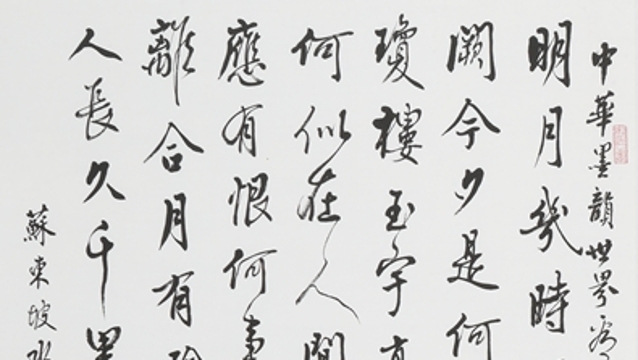 中華墨韻世界
明月幾時
闕今夕是何
瓊樓玉宇高
何似在人間
應有恨何事
離合月有陰
人長久千里
蘇東坡水